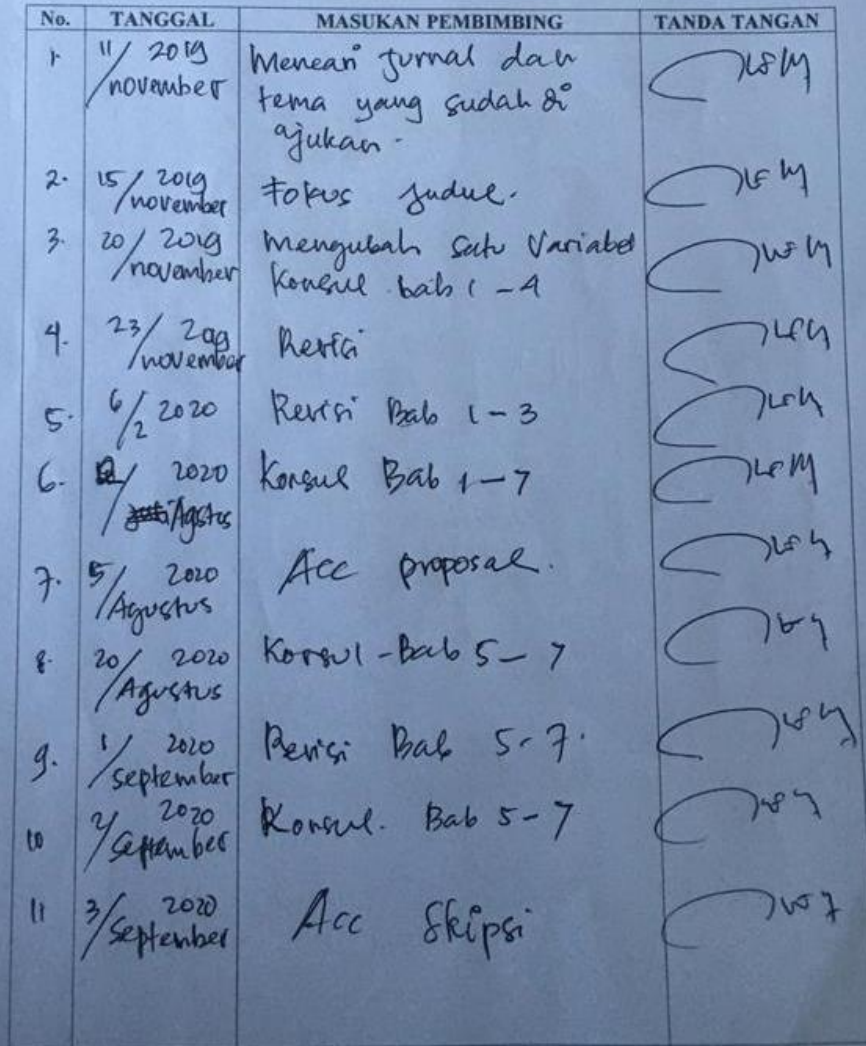 No. TANGGAL MASUKAN PEMBIMBING TANDA TANGAN
1. 11/november 2019 Mencari jurnal dan
tema yang sudah di
ajukan.
2. 15/november 2019 Fokus judul.
3. 20/november 2019 Mengubah satu Variabel
Konsul bab 1-4
4. 23/november 2019 Revisi
5. 6/2 2020 Revisi Bab 1-3
6. 2020 Konsul Bab 1-7
Agstus
7. 5/Agustus 2020 Acc proposal.
8. 20/Agustus 2020 Konsul-Bab 5-7
9. 1/september 2020 Revisi Bab 5-7.
10 2/September 2020 Konsul. Bab 5-7
11 3/September 2020 Acc Skipsi